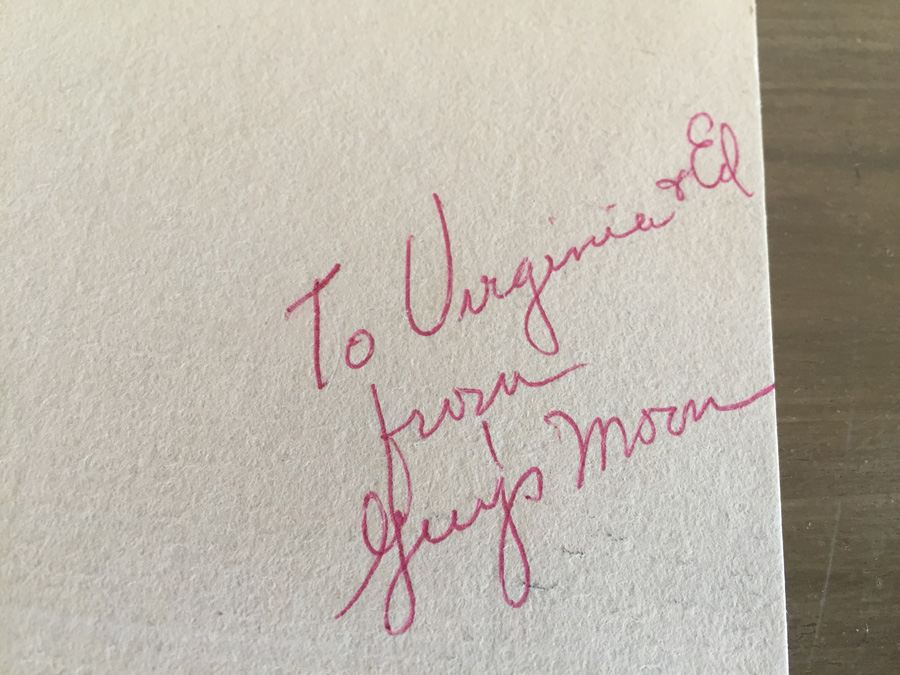 To Virginia & Ed
from
Guy's Moon